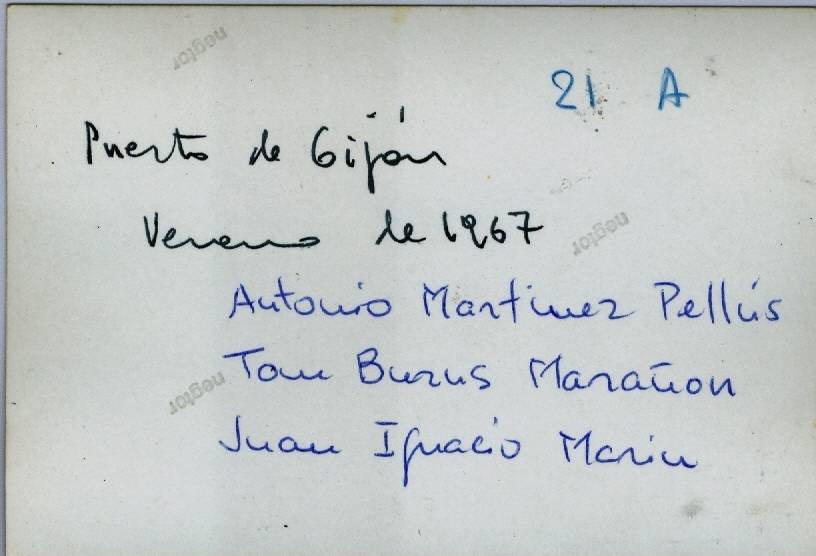 negtor
21 A
Puerto de Gijón
Verano de 1967
negtor
Antonio Martinez Pellús
Tom Burns Marañon
negtor
Juan Ignacio Marin